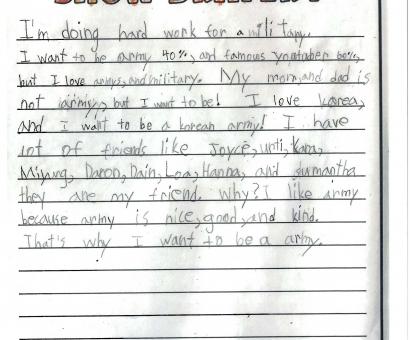 I'm doing hard work for a military.
I want to be army 40%, and famous ynutuber 60%,
but I love armys, and military. My mom, and dad is
not army, but I want to be! I love korea,
and I want to be a korean army! I have
lot of friends like Joyce, Kara,
Daron, Dain, Loa, Hanna, and sumantha
they are my friend. Why? I like army
because army is nice, good, and kind.
That's why I want to be a army.